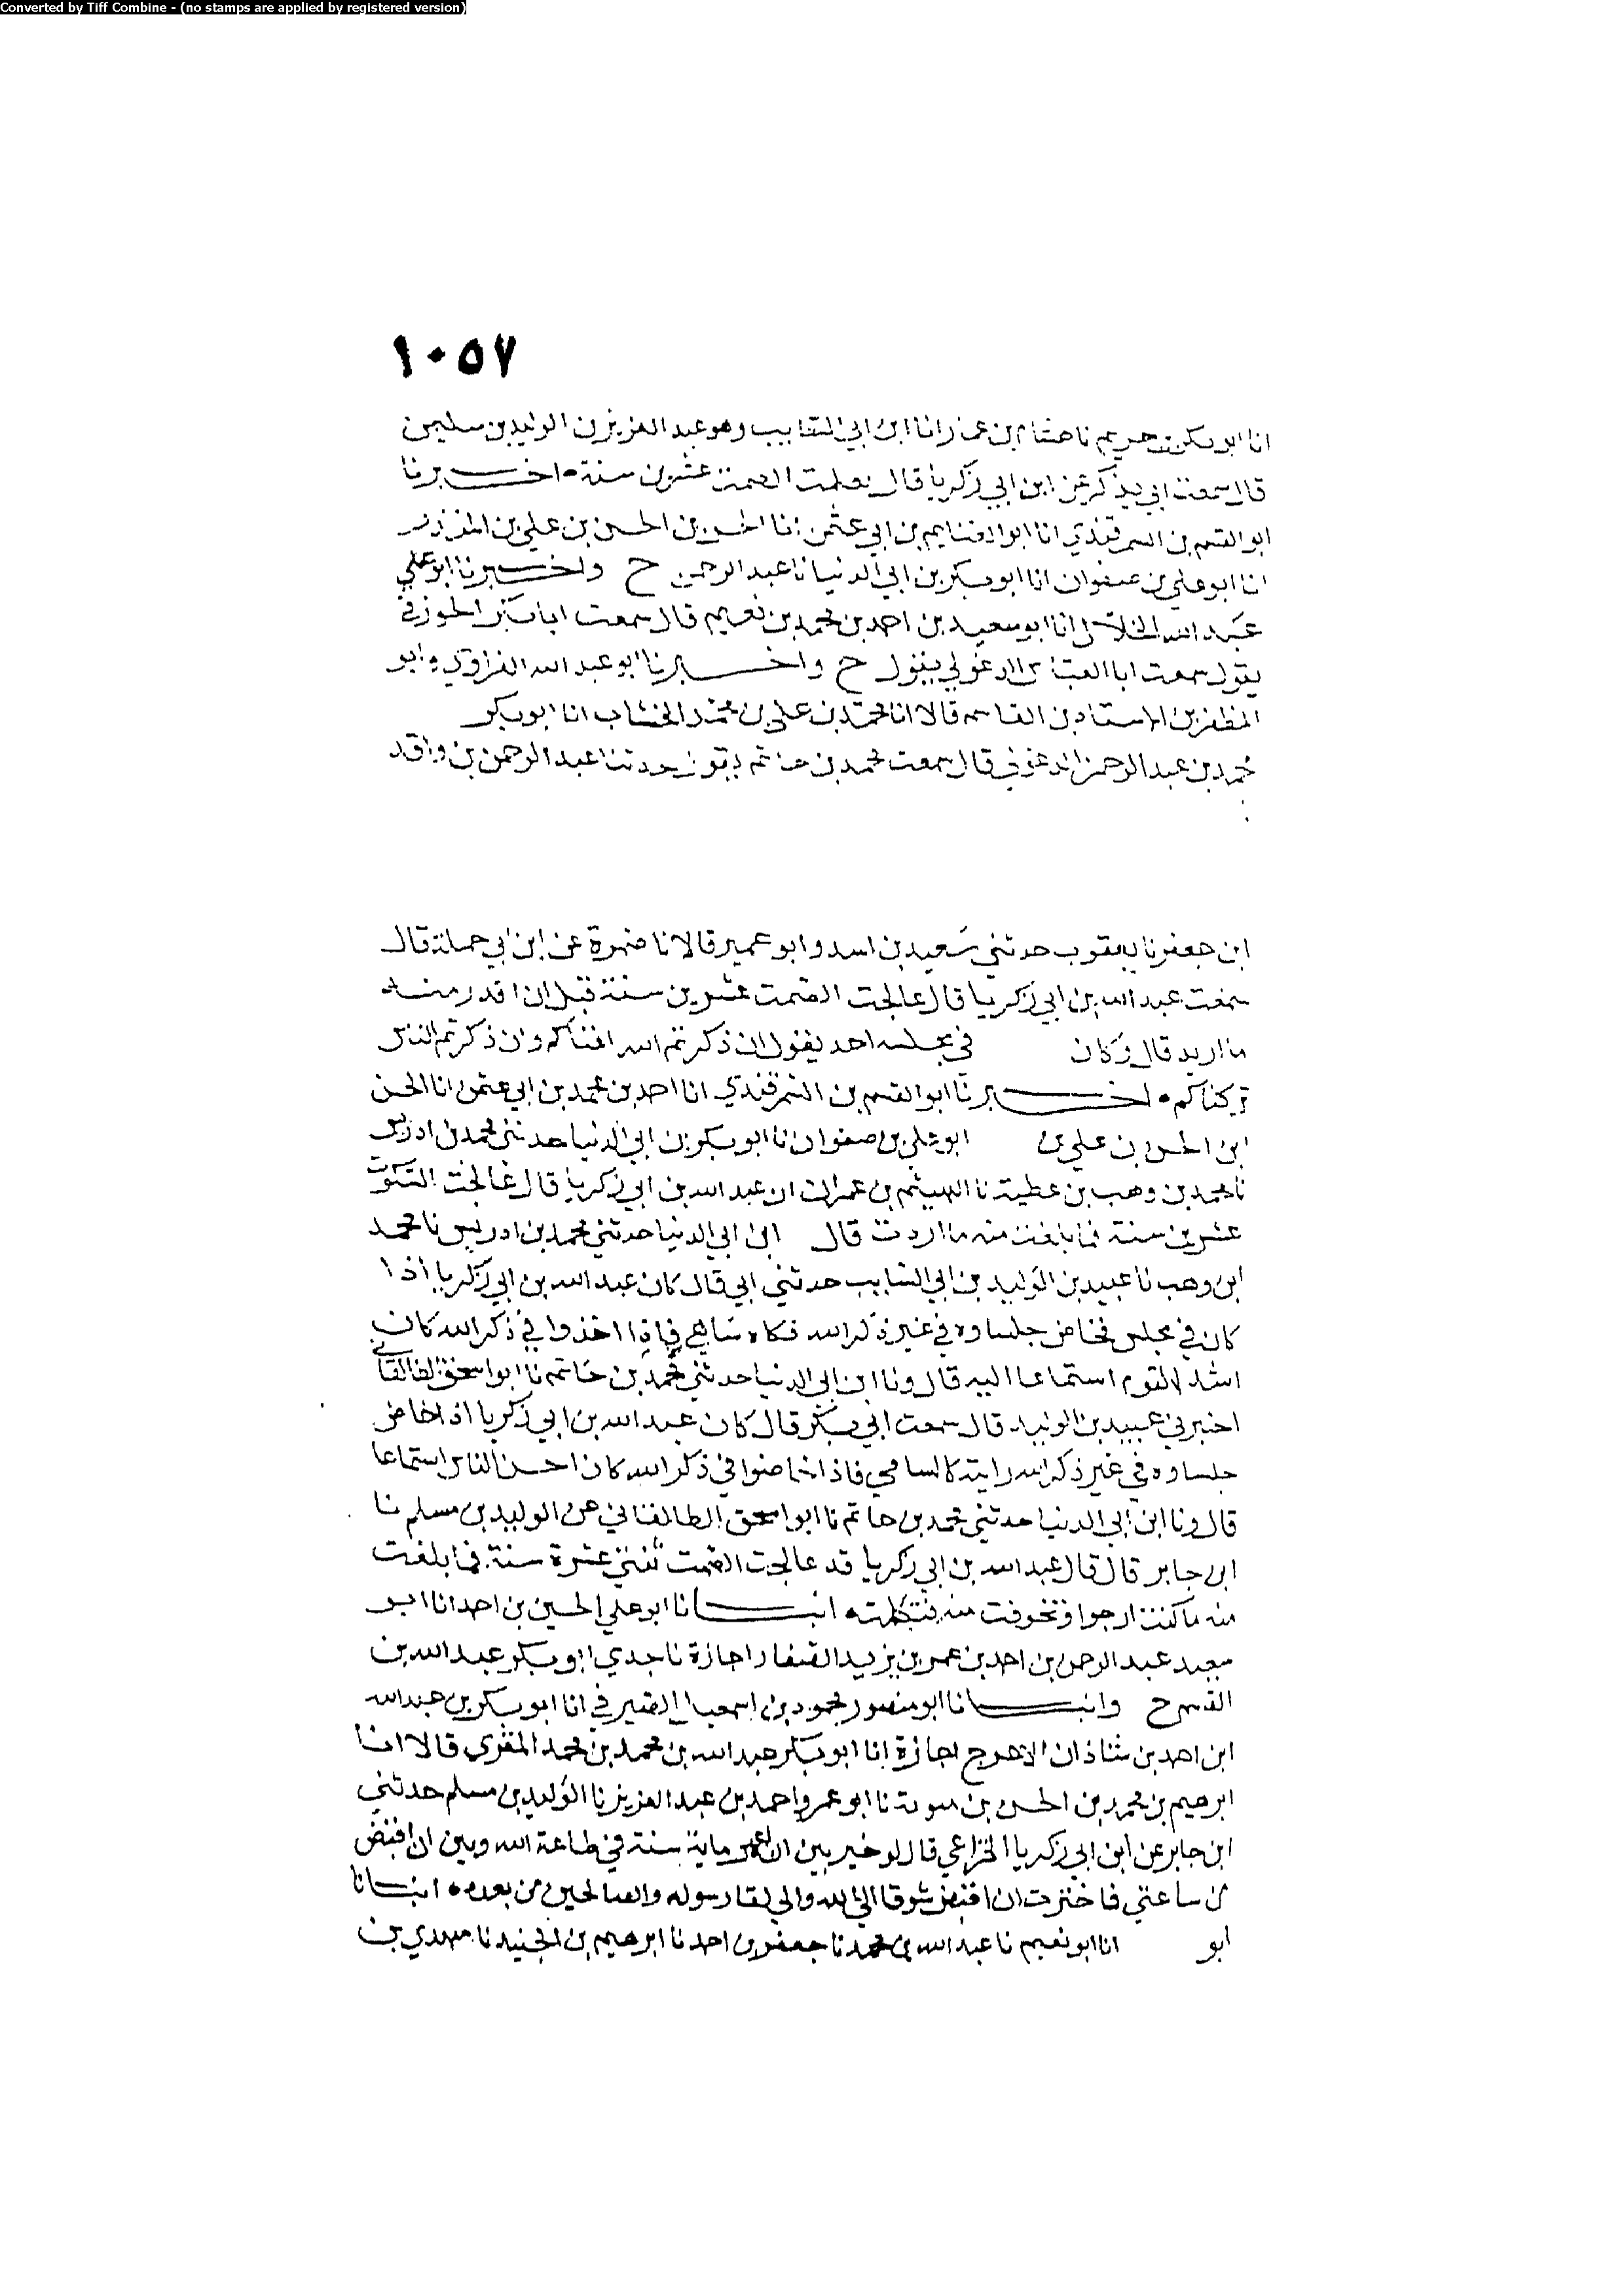 Converted by Tiff Combine - (no stamps are applied by registered version)
١٠٥٧
انا ابو بكر بن خريم نا هشام بن عمار انا ابن ابي السايب وهو عبد العزيز بن الوليد بن سليمن
قال سمعت ابي يذكر عن ابن ابي زكريا قال تعلمت الصمت عشرين سنة اخبرنا
ابو القسم بن السمرقندي انا ابو الغنايم بن ابي عثمن انا الحسن بن الحسن بن علي بن المنذر
انا ابو علي بن صفوان انا ابو بكر بن ابي الدنيا نا عبد الرحمن ح واخبرنا ابو علي
عبد الله الخلال انا ابو سعيد بن احمد بن محمد بن نعيم قال سمعت ابا بكر الجوزقي
يقول سمعت ابا العباس الدغولي يقول ح واخبرنا ابو عبد الله الفراوي وابو
المظفر بن الاستاذ بن القاسم قالا انا محمد بن علي بن محمد الخشاب انا ابو بكر
محمد بن عبد الرحمن الدغولي قال سمعت محمد بن حاتم يقول حدثنا عبد الرحمن بن واقد
ابن جعفر نا يعقوب حدثني سعيد بن اسد وابو عمير قالا نا ضمرة عن ابن ابي حملة قال
سمعت عبد الله بن ابي زكريا قال عالجت الصمت عشرين سنة قبل ان اقدر منه
ما اريد قال وكان في مجلسه احد يقول ان ذكرتم الله اعناكم وان ذكرتم الناس
تركناكم اخبرنا ابو القسم بن السمرقندي انا احمد بن محمد بن ابي عثمن انا الحسن
ابن الحسن بن علي بن ابو علي بن صفوان نا ابو بكر بن ابي الدنيا حدثني محمد بن ادريس
نا محمد بن وهب بن عطية نا الهيثم بن عمران ان عبد الله بن ابي زكريا قال عالجت السكوت
عشرين سنة فما بلغت منه ما اردت قال ابن ابي الدنيا حدثني محمد بن ادريس نا محمد
ابن وهب نا عبيد بن الوليد بن ابي السايب حدثني ابي قال كان عبد الله بن ابي زكريا اذا
كان في مجلس فخاض جلساوه في غير ذكر الله فكاه ساهي فاذا اخذوا في ذكر الله كان
اشد القوم استماعا اليه قال ونا ابن ابي الدنيا حدثني محمد بن حاتم نا ابو اسحق الطالقاني
اخبرني عبيد بن الوليد قال سمعت ابي بكر قال كان عبد الله بن ابي زكريا اذا خاض
جلساوه في غير ذكر الله رايته كالساهي فاذا خاضوا في ذكر الله كان احسن الناس استماعا
قال ونا ابن ابي الدنيا حدثني محمد بن حاتم نا ابو اسحق الطالقاني عن الوليد بن مسلم نا
ابن جابر قال قال عبد الله بن ابي زكريا قد عالجت الصمت ثنتي عشرة سنة فما بلغت
منه ما كنت ارجوا وتخوفت منه فتكلمت انبانا ابو علي الحسين بن احمد انا ابو
سعيد عبد الرحمن بن احمد بن عمر بن يزيد الصفار اجازة نا جدي ابو بكر عبد الله بن
القسم ح وانبانا ابو منصور محمود بن اسمعيل الصيرفي انا ابو بكر بن عبد الله
ابن احمد بن شاذان الاعرج اجازة انا ابو بكر عبد الله بن محمد بن محمد المقري قالا انا
ابرهيم بن محمد بن الحسن بن متويه نا ابو عمرو احمد بن عبد العزيز نا الوليد بن مسلم حدثني
ابن جابر عن ابن ابي زكريا الخزاعي قال لو خير بين ان اعمر ماية سنة في طاعة الله وبين ان اقبض
من ساعتي فاخترت ان اقبض شوقا الى الله والى لقا رسوله والصالحين من بعده انبانا
ابو انا ابو نعيم نا عبد الله بن محمد نا جعفر بن احمد نا ابرهيم بن الجنيد نا مهدي بن